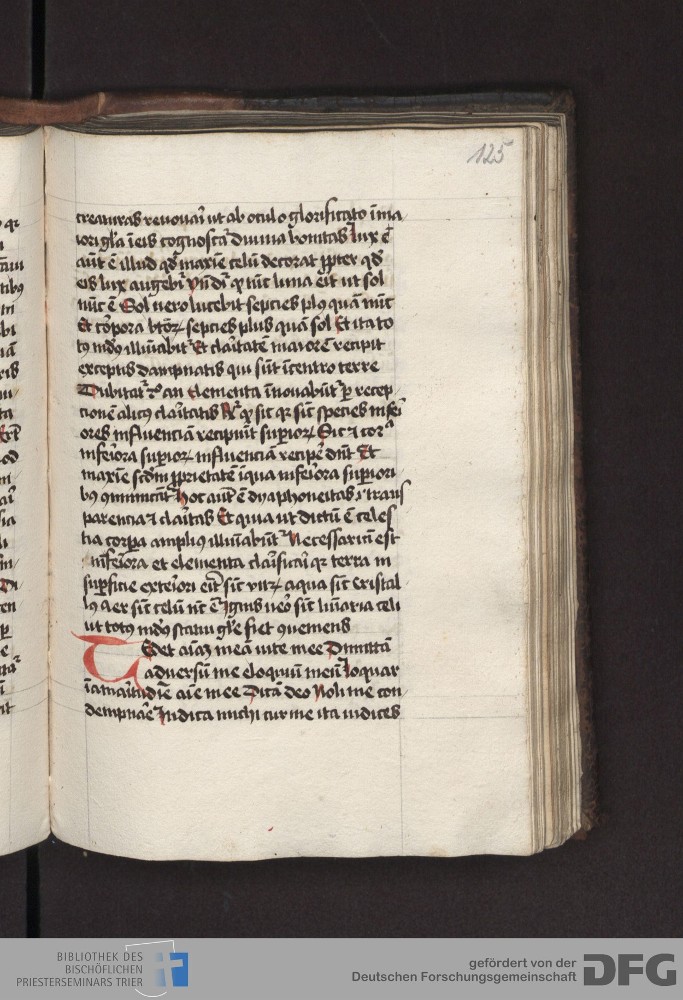 125
creaturas renouari ut ab oculo glorificato i ma
iori gl̄a ī eis cognoscat̄ diuina bonitas Lux ē
aūt ē illud qd̄ maxīe celū decorat ꝓpter qd̄
eis lux augebit̄ Vn̄ dr̄ ꝙ tūc luna erit ut sol
nūc ē Sol vero lucebit septies plꝰ quā nūc
Et corpora btōꝝ septies plus quā sol Et ita to
tꝰ mūdꝰ illuīabit̄ Et claritatē maiorē recipit
exceptis dampnatis qui sūt ī centro terre
Dubitat̄ an elementa īnouabūt̄ ꝑ recep
cionē alicꝰ claritatis ꝙ sic qr sic̄ species inferi
ores influenciā recipiūt supioꝝ Sic ⁊ cor̄
inferiora supioꝝ influenciā recipe dn̄t Et
maxīe scdm ꝓprietatē ī qua inferiora supiori
bꝰ ꝯmunicāt̄ hoc aūt ē dyaphoneitas .i. trans
parencia ⁊ claritas Et quia ut dictū ē celes
tia corpa amplius illuīabūt̄ Necessariū est
inferiora et elementa clarificari qr terra in
supficie exteriori erit sic̄ vitꝝ aqua sic̄ cristal
lꝰ Aer sic̄ celū nc̄ ē Ignis vero sic̄ luīaria celi
ut totꝰ mūdꝰ statui gl̄e fiet ꝯueniens
Tedet aīaz meā vite mee Dimittā
aduersū me eloquiū meū loquar
ī amaritudīe aīe mee Dicā deo Noli me con
dempnāe Indica michi cur me ita iudices
BIBLIOTHEK DES
BISCHÖFLICHEN
PRIESTERSEMINARS TRIER
gefördert von der
Deutschen Forschungsgemeinschaft
DFG